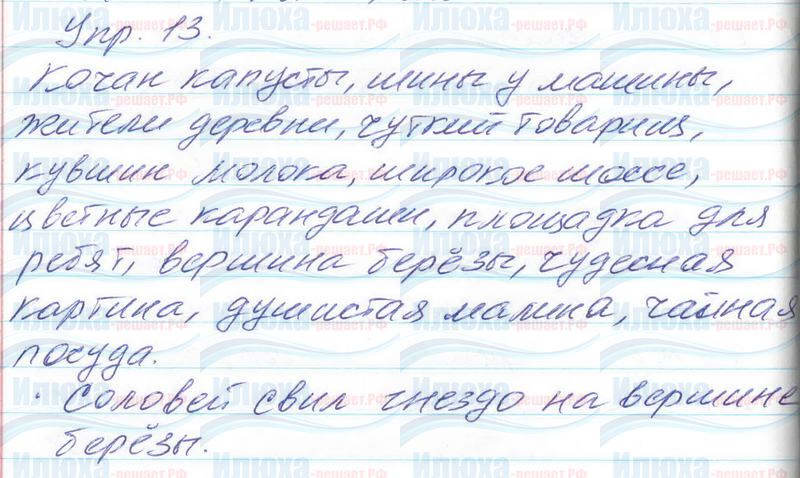 Упр. 13.
Кочан капусты, шины у машины,
жители деревни, чуткий товарищ,
кувшин молока, широкое шоссе,
цветные карандаши, площадка для
ребят, вершина берёзы, чудесная
картина, душистая малина, чайная
посуда.
· Соловей свил гнездо на вершине
берёзы.